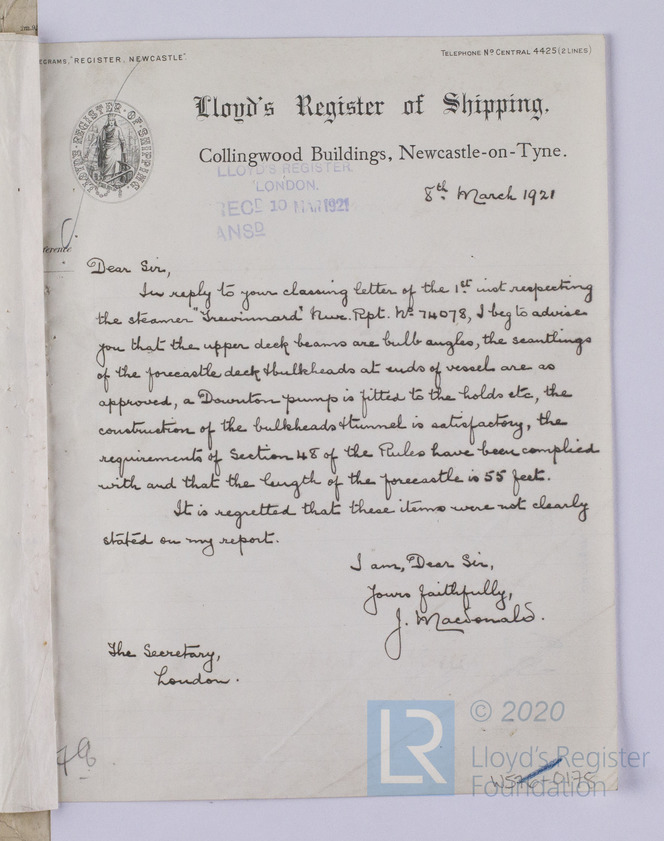 EGRAMS, "REGISTER, NEWCASTLE".
TELEPHONE Nº CENTRAL 4425 (2 LINES)
LLOYDS REGISTER OF SHIPPING
Lloyd's Register of Shipping.
Collingwood Buildings, Newcastle-on-Tyne.
LLOYD'S REGISTER
LONDON.
RECD 10 MAR 1921
ANSD
8th March 1921
ference
Dear Sir,
In reply to your classing letter of the 1st inst respecting
the steamer "Trewinnard" Nwc. Rpt. No 74078, I beg to advise
you that the upper deck beams are bulb angles, the scantlings
of the forecastle deck & bulkheads at ends of vessel are as
approved, a Downton pump is fitted to the holds etc, the
construction of the bulkheads & tunnel is satisfactory, the
requirements of Section 48 of the Rules have been complied
with and that the length of the forecastle is 55 feet.
It is regretted that these items were not clearly
stated on my report.
I am, Dear Sir,
Yours faithfully,
J. Macdonald.
The Secretary,
London.
LR
© 2020
Lloyd's Register
Foundation